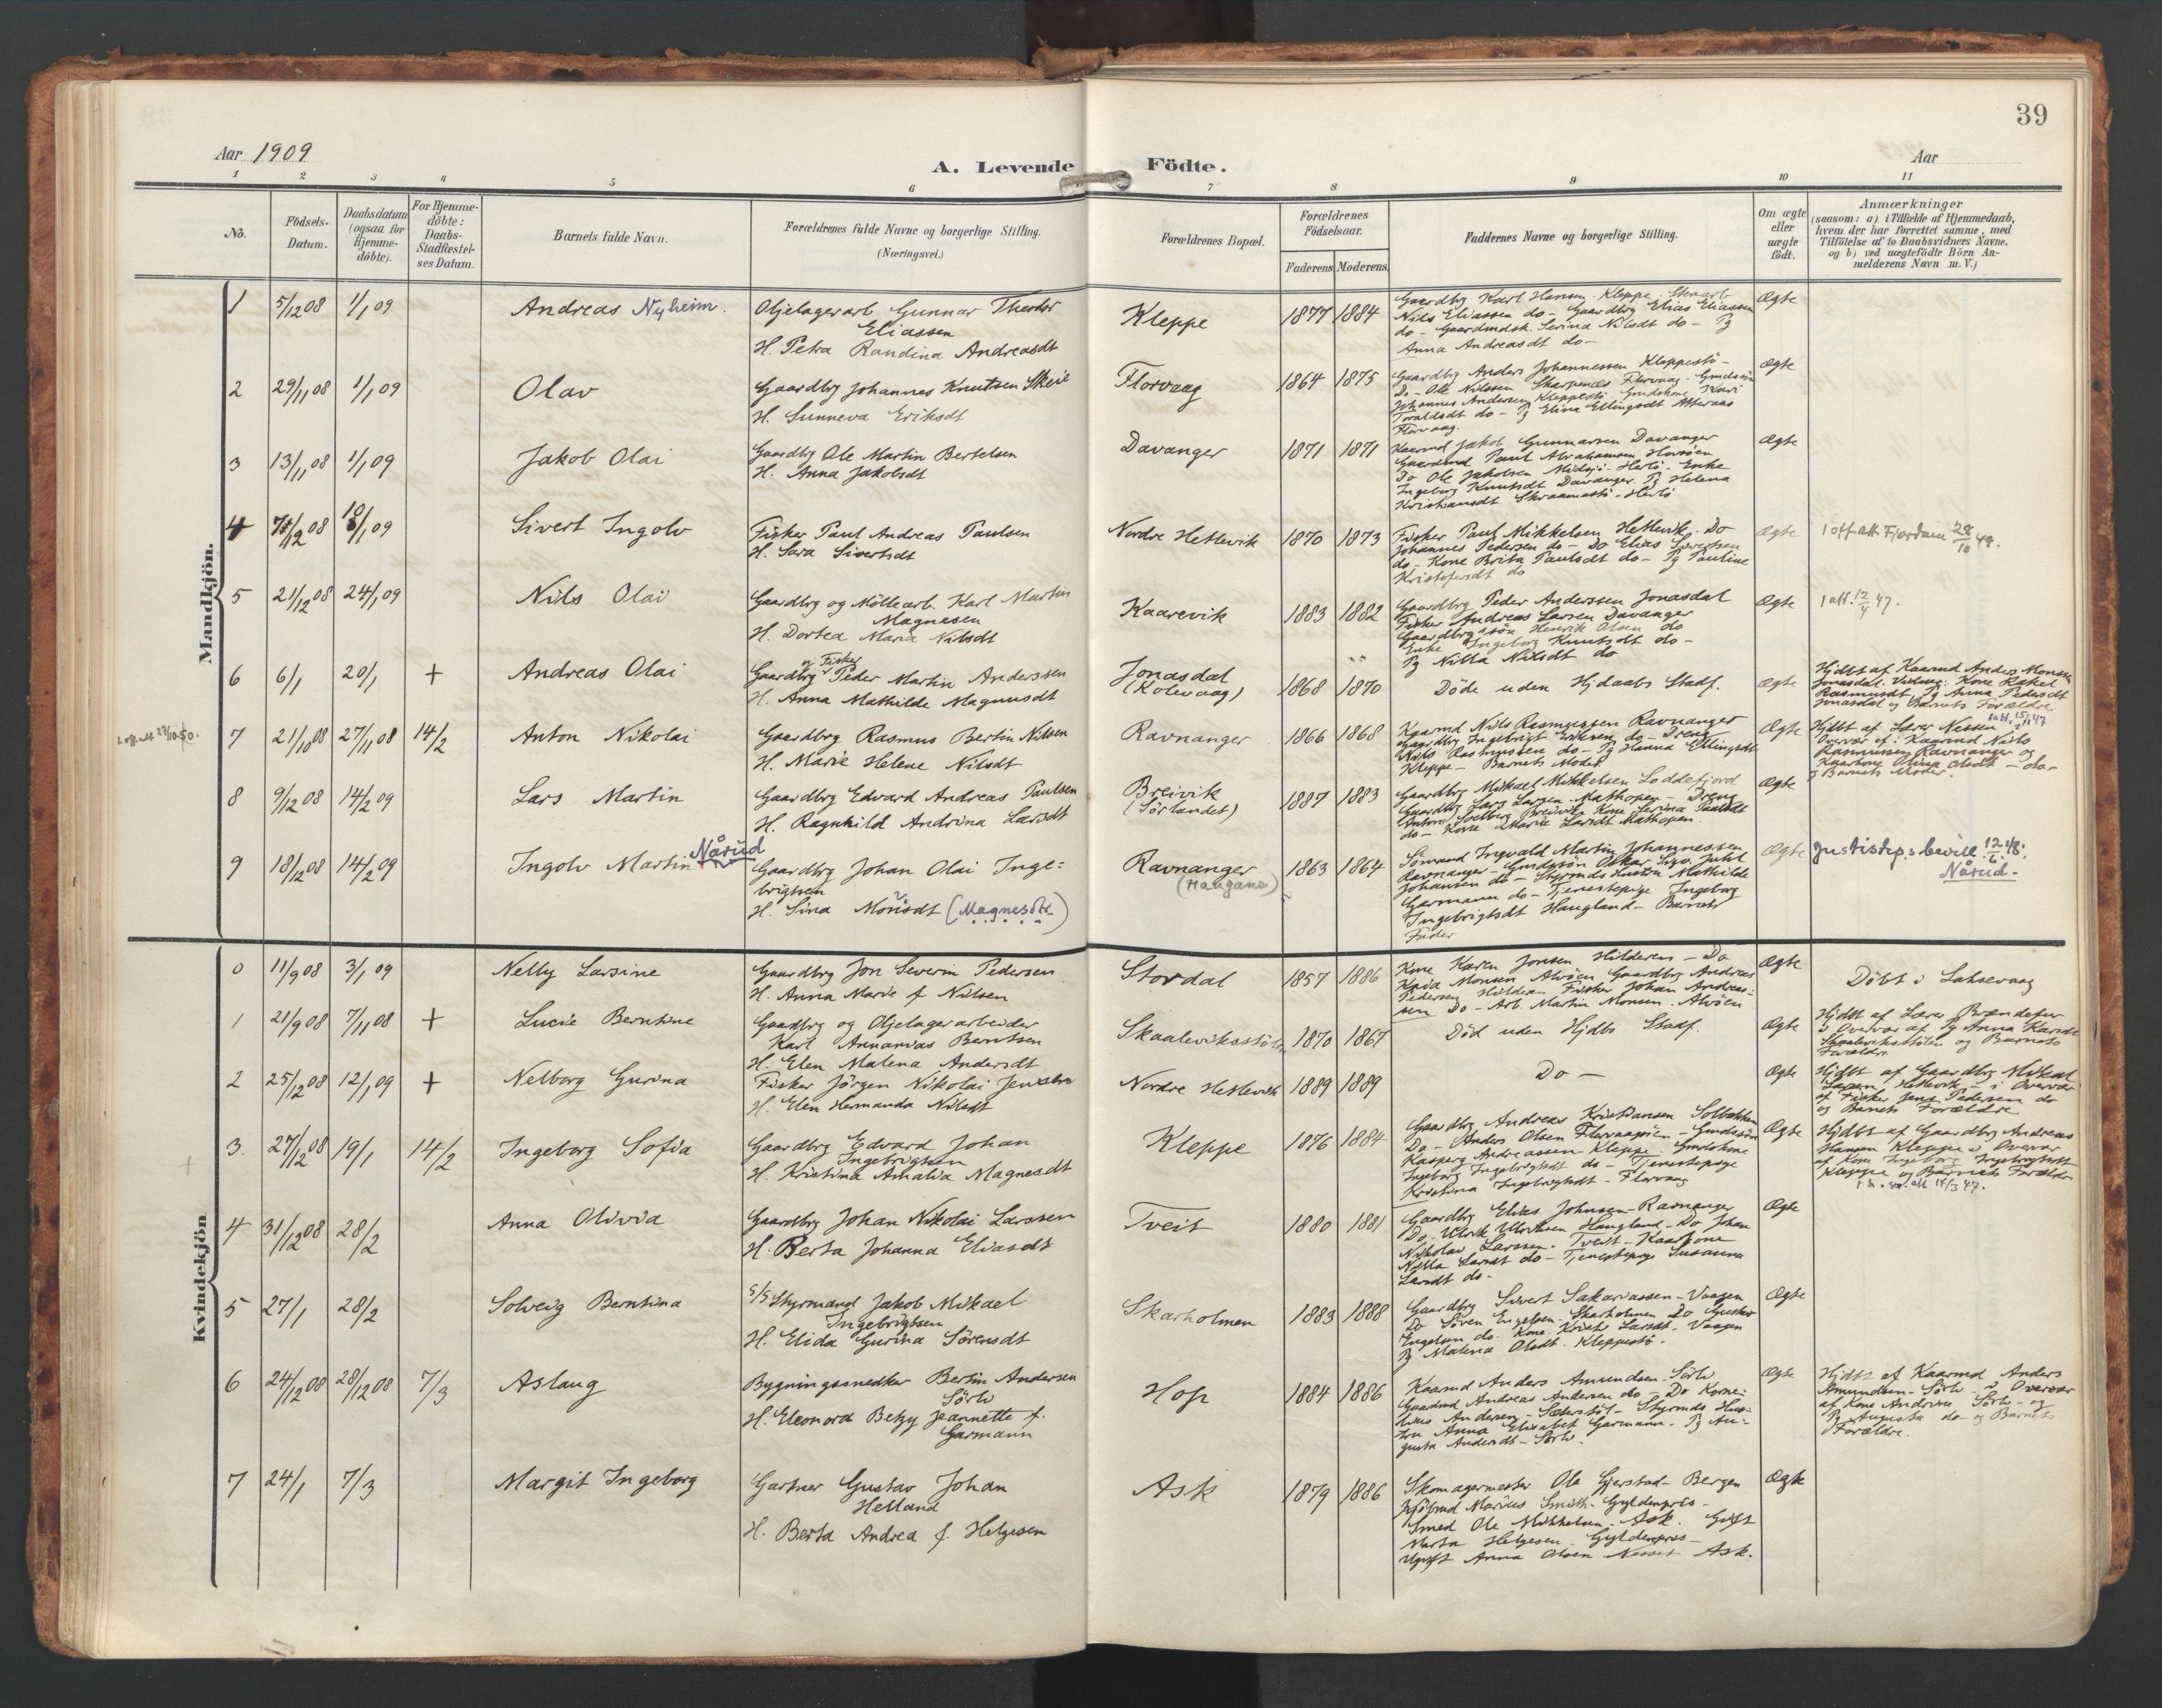 39
Aar 1909
A. Levende Födte.
Aar
1 2 3 4 5 6 7 8 9 10 11
No.
Födsels-
Datum.
Daabsdatum
(ogsaa for
Hjemme-
döbte).
For Hjemme-
döbte:
Daabs-
Stadfæstel-
ses Datum.
Barnets fulde Navn.
Forældrenes fulde Navne og borgerlige Stilling.
(Næringsvei.)
Forældrenes Bopæl.
Forældrenes
Födselsaar.
Faderens Moderens.
Faddernes Navne og borgerlige Stilling.
Om ægte
eller
uægte
födt.
Anmærkninger
(saasom: a) i Tilfælde af Hjemmedaab,
hvem der har forrettet samme, med
Tilföielse af to Daabsvidners Navne.
og b) ved uægtefödte Börn An-
melderens Navn m. V.)
Mandkjön.
1 5/12 08 1/1 09 Andreas Nyheim.
Oljelagerarb. Gunnar Theodor
Eliassen
H. Petra Randina Andreasdt
Kleppe 1877 1884
Gaardbrg Karl Hansen Kleppe. Stenarb
Nils Eliassen do – Gaardbrg Elias Eliassen
do – Gaardmdsk. Serina Nilsdt do – Pg
Anna Andreasdt do –
Ægte
2 29/11 08 1/1 09 Olav
Gaardbrg Johannes Knutsen Skeie
H. Sunneva Eriksdt
Florvaag 1864 1875
Gaardbrg Anders Johannessen Kleppestö –
Do – Ole Nilssen Skarpenæs Florvaag – Gmdssön
Johannes Andersen Kleppestö. Gmdskone Kari
Toraldsdt do – Pg Elina Ellingsdt
Florvaag.
Ægte
3 13/11 08 1/1 09 Jakob Olai
Gaardbrg Ole Martin Bertelsen
H. Anna Jakobsdt
Davanger 1871 1871
Kaarmd Jakob Gunnarsen Davanger
Gaardmd Paul Abrahamsen
Do Ole Jakobsen Midsjö – Herlö – Enke
Ingeborg Knutsdt Davanger. Pg Helena
Kristiansdt Skraamestö – Herlö
Ægte
4 7/12 08 10/1 09 Sivert Ingolv
Fisker Paul Andreas Paulsen
H. Sara Sivertsdt
Nordre Hetlevik 1870 1873
Fisker Paul Mikkelsen Hetlevik. Do
Johannes Pedersen do – Do Elias Sivertsen
do – Kone Brita Paulsdt do – Pg Pauline
Kristofersdt do
Ægte
1 off. att. Fjordam 28/10 49.
5 21/12 08 24/1 09 Nils Olai
Gaardbrg og Möllearb. Karl Martin
Magnesen
H. Dortea Maria Nilsdt
Kaarevik 1883 1882
Gaardbrg Peder Anderssen Jonasdal
Fisker Andreas Larsen Davanger
Gaardbrgssön Henrik Olsen do
Enke Ingeborg Knutsdt do –
Pg Nilla Nilsdt do
Ægte
1 att. 12/4 47.
6 6/1 20/1 + Andreas Olai
og Fisker
Gaardbrg Peder Martin Anderssen
H. Anna Mathilde Magnusdt
Jonasdal
(Kolevaag)
1868 1870
Döde uden Hjdaabs Stadf.
Ægte
Hjdbt af Kaarmd Anders Monsen
Jonasdal. Vidner: Kone Rakel
Rasmusdt, Pg Anna Pedersdt
Jonasdal og Barnets Forældre.
1. off. att 27/10 50.
7 21/10 08 27/11 08 14/2 Anton Nikolai
Gaardbrg Rasmus Bertin Nilsen
H. Marie Helene Nilsdt
Ravnanger 1866 1868
Kaarmd Nils Rasmussen Ravnanger
Gaardbrg Ingebrigt Eriksen do – Dreng
Nils Rasmussen do – Pg Hanna Ellingsdt
Kleppe – Barnets Moder
Ægte
1 att. 15/11 47
Hjdbt af Lærer Nessen i
Overvær af: Kaarmd Nils
Rasmussen Ravnanger og
Kaarkone Olina Olsdt – do –
og Barnets Moder.
8 9/12 08 14/2 09 Lars Martin
Gaardbrg Edvard Andreas Paulsen
H. Ragnhild Andrina Larsdt
Breivik
(Sörlandet)
1887 1883
Gaardbrg Mikael Mikkelsen Loddefjord
Gaardbrg Lars Larsen Mathopen – Dreng
Anton Soelberg Breivik. Kone Serina Paulsdt
do – Kone Marie Larsdt Mathopen.
Ægte
9 18/12 08 14/2 09 Ingolv Martin Nårud
Gaardbrg Johan Olai Inge=
brigtsen
H. Sina Monsdt (Magnesdtr.)
Ravnanger
(Haugane)
1863 1864
Sömand Ingvald Martin Johannessen
Ravnanger – Gmdssön Oskar Sigv. Juhl
Johansen do – Styrmds Hustru Mathilde
Garmann do – Tjenestepige Ingeborg
Ingebrigtsdt Haugland – Barnets
Fader
Ægte
Justisdep.s bevill. 12/6 48:
Nårud –
Kvindekjön
0 11/9 08 3/1 09 Nelly Larsine
Gaardbrg Jon Severin Pedersen
H. Anna Marie f. Nilsen
Stordal 1857 1886
Kone Karen Jonsen Hilderen – Do
Kaia Monsen Alvöen Gaardbrg Andreas
Pedersen Hilderen Fisker Johan Andreas=
sen Do – Arb. Martin Monsen. Alvöen
Ægte
Döbt i Laksevaag
1 21/9 08 7/11 08 + Lucie Berntine
Gaardbrg og Oljelagerarbeider
Karl Annanias Berntsen
H. Elen Malena Andersdt
Skaaleviksstölen 1870 1867
Död uden Hjdbs Stadf.
Ægte
Hjdbt af Lærer Brændefur
i Overvær af Pg Anna Larsdt
Skaaleviksstölen og Barnets
Forældre.
2 25/12 08 12/1 09 + Nelborg Gurina
Fisker Jörgen Nikolai Jenssen
H. Elen Hermanda Nilsdt
Nordre Hetlevik 1889 1889
Do –
Ægte
Hjdbt af Gaardbrg Mikal
Larsen Hetlevik – i Overvær
af Fisker Jens Pedersen do
og Barnets Forældre
3. 27/12 08 19/1 14/2 Ingeborg Sofia
Gaardbrg Edvard Johan
Ingebrigtsen
H. Kristina Amalia Magnesdt
Kleppe 1876 1884
Gaardbrg Andreas Kristiansen Solbakken
Do – Anders Olsen Florvaagöen – Gmdssön
Kasperg Andreassen Kleppe Gmdskone
Ingeborg Ingebrigtsdt do – Tjenestepige
Kristina Ingebrigtsdt – Florvaag
Ægte
Hjdbt af Gaardbrg Andreas
Hansen Kleppe i Overvær
af Kone Ingeborg Ingebrigtsdt
Kleppe og Barnets Forældre
att 14/3 47.
4 31/12 08 28/2 Anna Olivia
Gaardbrg Johan Nikolai Larssen
H. Berta Johanna Eliasdt
Tveit 1880 1881
Gaardbrg Elias Johnsen – Ravnanger
Do – Ulrik Ulriksen Haugland – Do Johan
Nikolai Larssen. Tveit – Kaarkone
Nilla Larsdt do – Tjenestepige Susanna
Larsdt do –
Ægte
5 27/1 28/2 Solveig Berntina
S/S Styrmand Jakob Mikael
Ingebrigtsen
H. Elida Gurina Sörensdt
Skarholmen 1883 1888
Gaardbrg Sivert Sakariassen – Vaagen
Do Sören Engelsen. Skarholmen Do Gustav
Engelsen do. Kone Kristi Larsdt. Vaagen
Pg Malena Olsdt. Kleppestö.
Ægte
6 24/12 08 28/12 08 7/3 Aslaug
Bygningssnedker Bertin Andersen
Sörli
H. Eleonord Betzy Jeannette f.
Garmann
Hop 1884 1886
Kaarmd Anders Amundsen – Sörli
Gaardmd Andreas Andersen do – Do Korne=
lius Andersen – Sæterstöl – Styrmds Hus=
tru Anna Elisabet Garmann. Pg Au=
gusta Andersdt – Sörli.
Ægte
Hjdbt af Kaarmd Anders
Amundsen – Sörli – i Overvær
af Kone Andrine Sörli – og
Pg Augusta do – og Barnets
Forældre.
7 24/1 7/3 Margit Ingeborg
Gartner Gustav Johan
Helland
H. Berta Andrea f. Helgesen
Ask 1879 1886
Skomagermester Ole Gjerstad – Bergen
Kjöbmd Marius Smith – Gyldenpris –
Smed Ole Mikkelsen – Ask. Gift
Marta Helgesen Gyldenpris –
Ugift Anna Olsen Nesset Ask.
Ægte